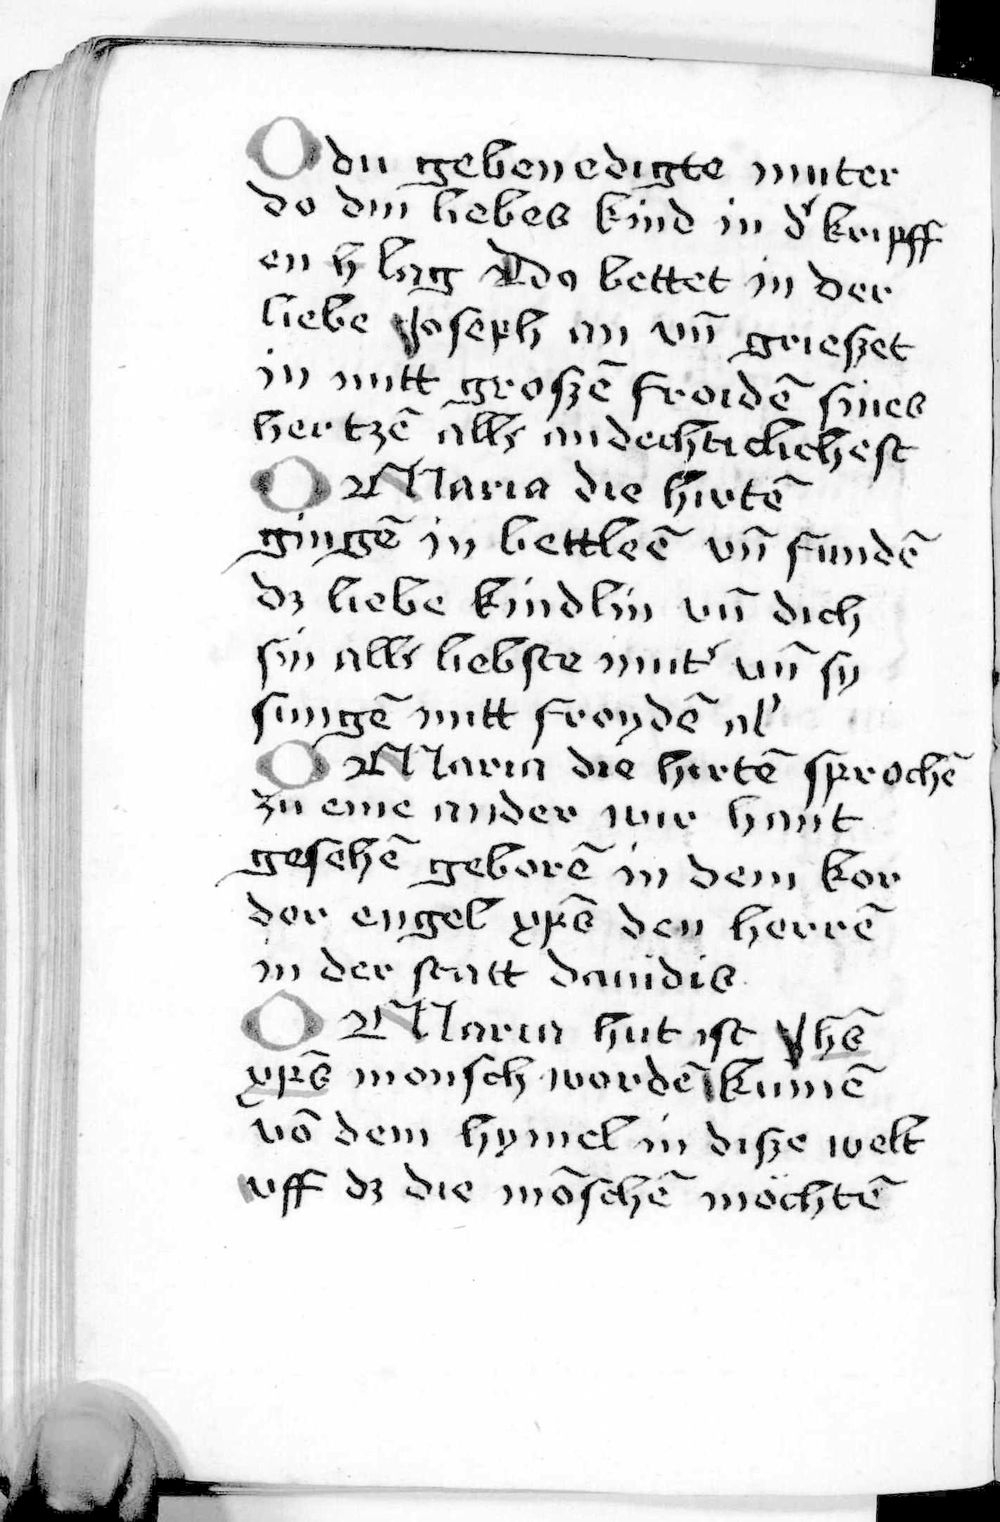 O du gebenedigte muter
do din liebes kind in dʾ kripff
en h lag Ado bettet in der
liebe Joseph an vn̄ grieszet
in mitt groszē froidē sines
hertzē allʾ andechticlichest
O Maria die hirtē
gingē in bettleē vn̄ fundē
dz liebe kindlin vn̄ dich
sin allʾ liebste mutʾ vn̄ sy
sungē mitt froydē alʾ
O Maria die hirtē sprochē
zu eine ander wir hant
gesehē geborē in dem kor
der engel xp̄s den herrē
in der statt dauidis
O Maria hut ist Jhs̄
xp̄s monsch wordē kumē
vō dem hymel in disze welt
vff dz die mōschē möchtē